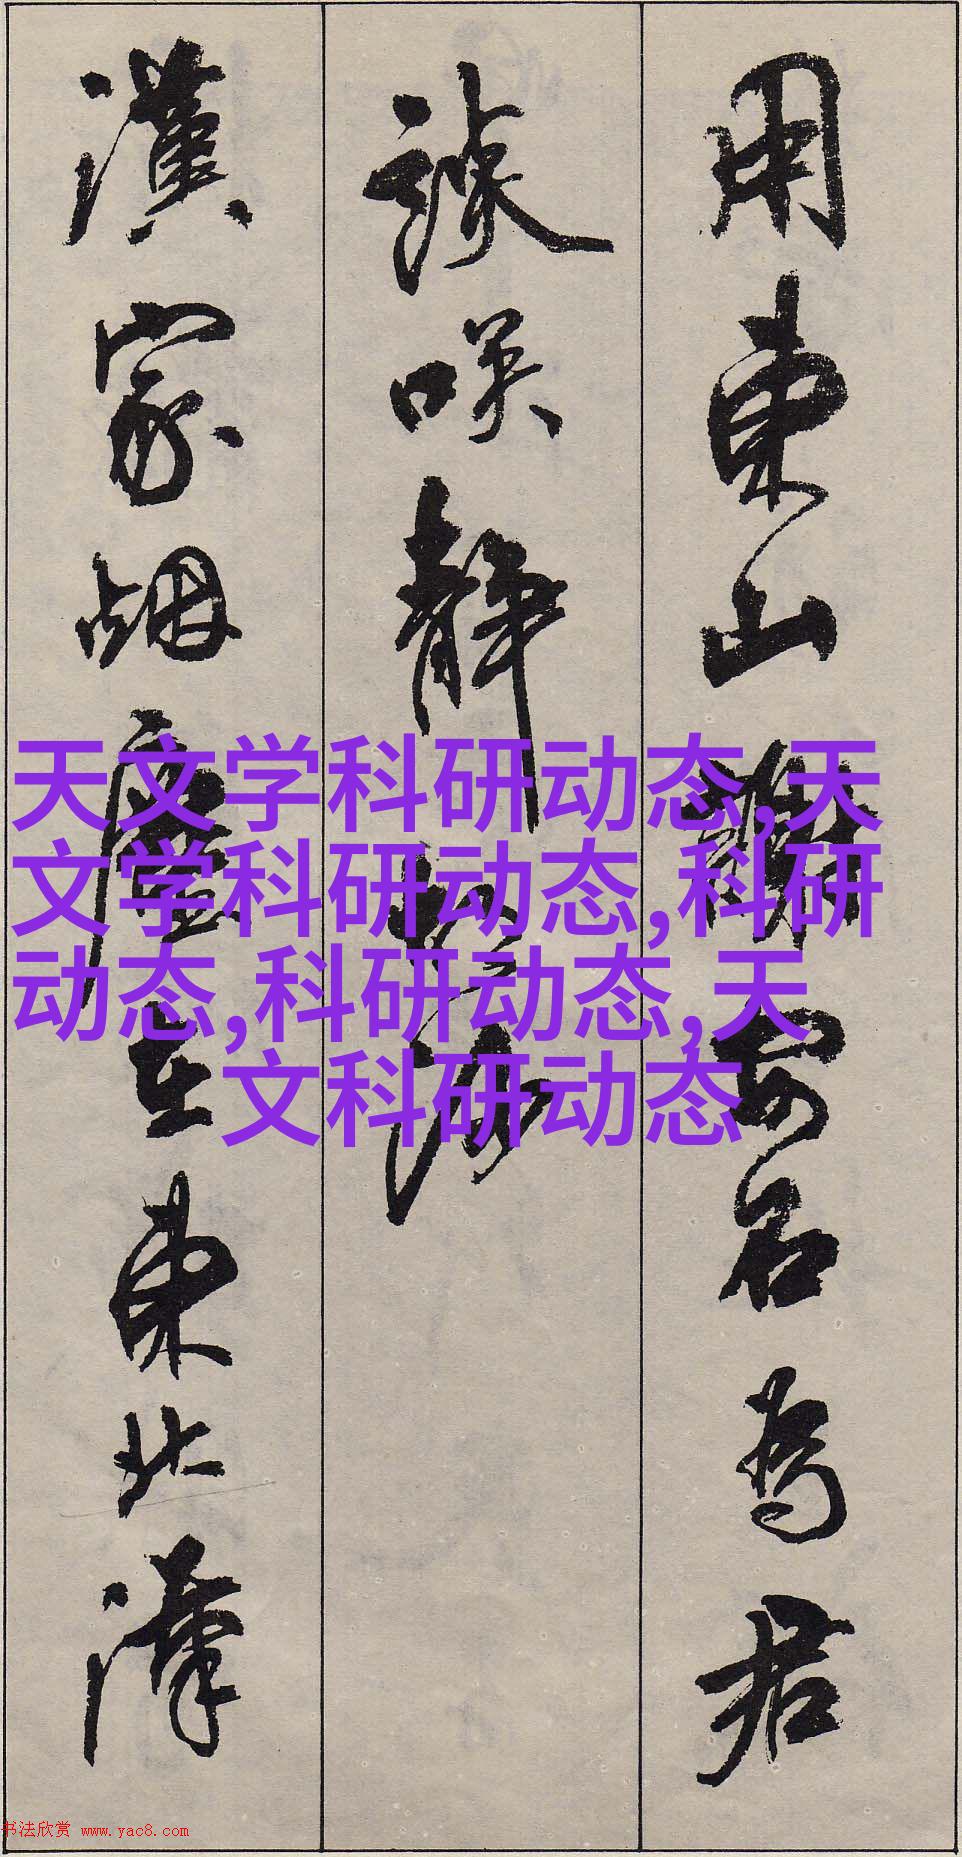 用東山謝安石為君
談咲静胡沙
漢家烟塵在東北漢
天文学科研动态,天
文学科研动态,科研
动态,科研动态,天
文科研动态
书法欣赏 www.yac8.com